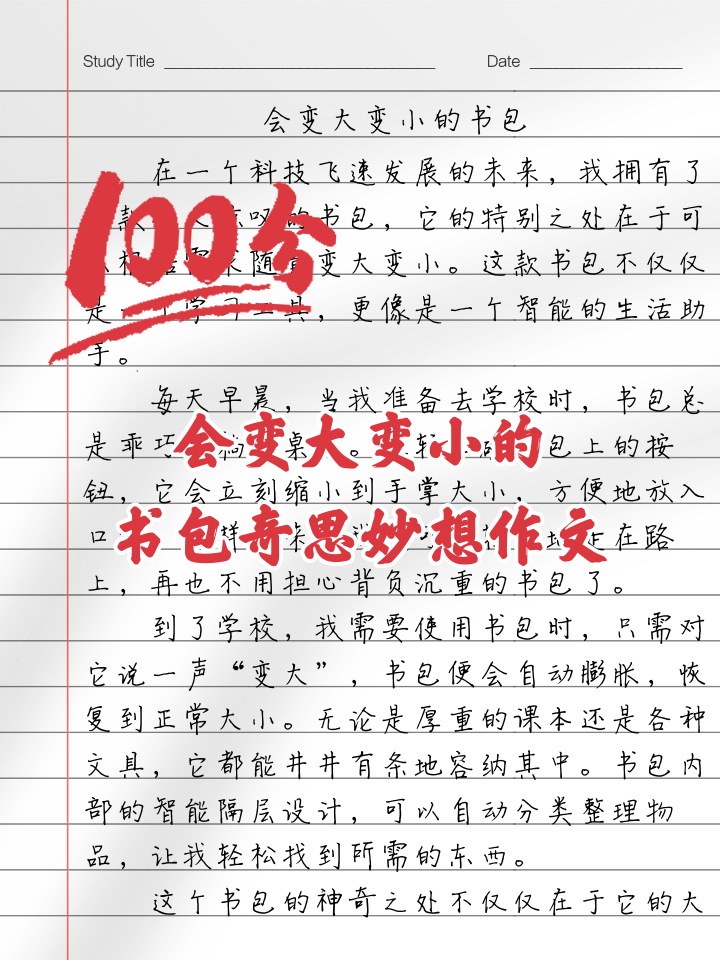 Study Title
Date
会变大变小的书包
在一个科技飞速发展的未来，我拥有了
款 的书包，它的特别之处在于可
随 变大变小。这款书包不仅仅
是一个学习工具，更像是一个智能的生活助
手。
100分
每天早晨，当我准备去学校时，书包总
是乖巧 桌 。 包上的按
会变大变小的
钮，它会立刻缩小到手掌大小，方便地放入
口 样 在路
书包奇思妙想作文
上，再也不用担心背负沉重的书包了。
到了学校，我需要使用书包时，只需对
它说一声“变大”，书包便会自动膨胀，恢
复到正常大小。无论是厚重的课本还是各种
文具，它都能井井有条地容纳其中。书包内
部的智能隔层设计，可以自动分类整理物
品，让我轻松找到所需的东西。
这个书包的神奇之处不仅仅在于它的大